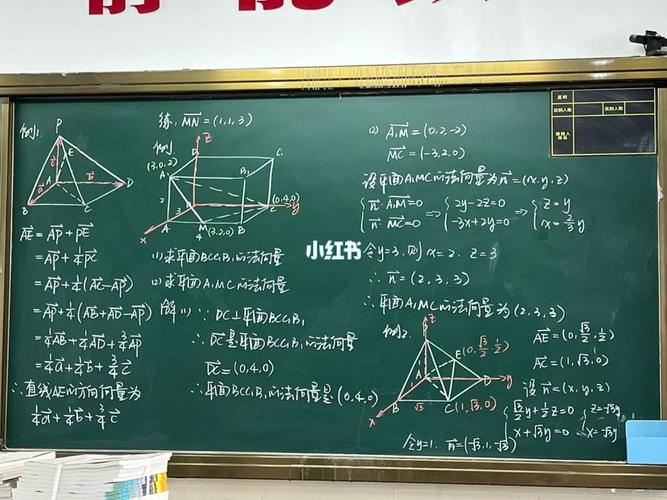 例1.
P
E
A
B
C
D
AE=AP+PE
=AP+1/4PC
=AP+1/4(AC-AP)
=AP+1/4(AB+AD-AP)
=1/4AB+1/4AD+3/4AP
=1/4a+1/4b+3/4c
∴直线AE的方向向量为
1/4a+1/4b+3/4c
练. MN=(1,1,3)
例
z
(3,0,2)
A₁
B₁
C₁
2
3
(0,4,0)
y
A
M
B
x
4
(3,2,0)
(1)求平面BCC₁B₁的法向量
(2)求平面A₁MC的法向量
解(1)∵DC⊥平面BCC₁B₁
∴DC是平面BCC₁B₁的法向量
DC=(0,4,0)
∴平面BCC₁B₁的法向量是(0,4,0)
小红书
(2) A₁M=(0,2,-2)
MC=(-3,2,0)
设平面A₁MC的法向量为n=(x,y,z)
{n·A₁M=0 ⇒ {2y-2z=0 ⇒ {z=y
n·MC=0 -3x+2y=0 x=2/3y
令y=3,则x=2, z=3
∴n=(2,3,3)
∴平面A₁MC的法向量为(2,3,3)
例2.
z
E(0,√3/2,1/2)
A
D
y
B
√3
C(1,√3,0)
x
AE=(0,√3/2,1/2)
AC=(1,√3,0)
设n=(x,y,z)
{√3/2y+1/2z=0 {z=-√3y
x+√3y=0 x=-√3y
令y=1. n=(-√3,1,-√3)
星期
应到人数
实到人数